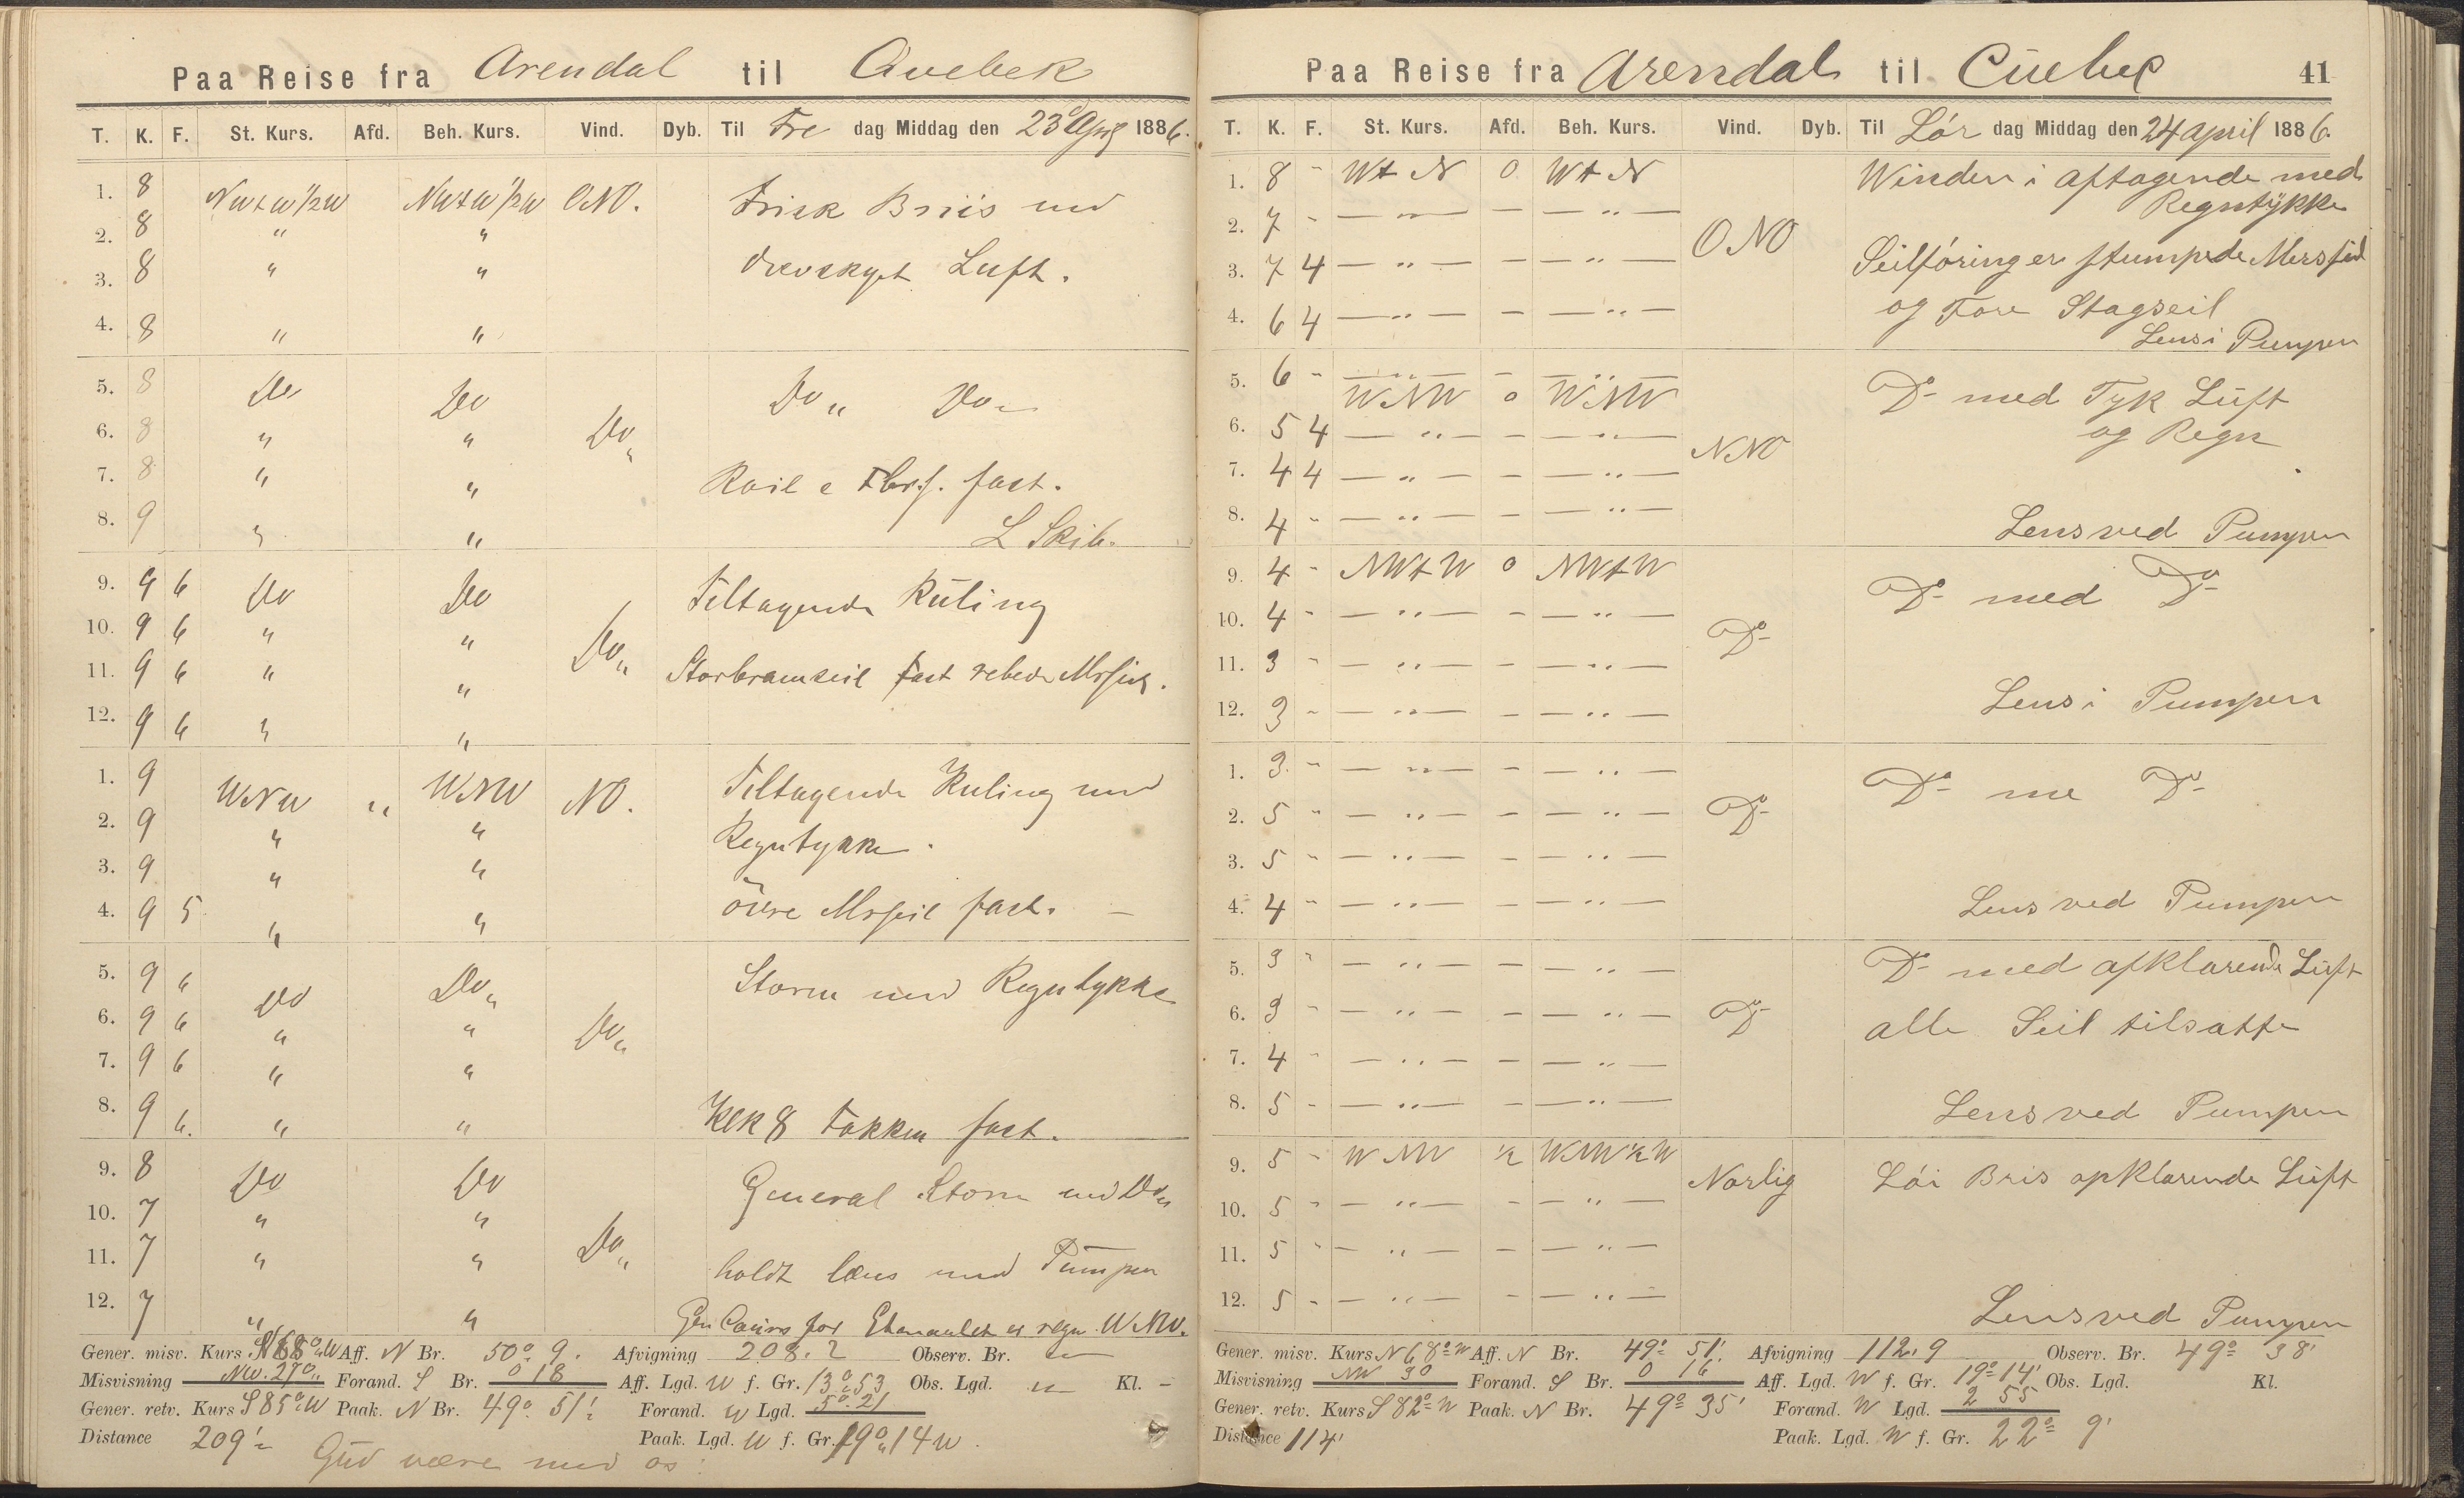 Paa Reise fra Arendal til Quebek
T. K. F. St. Kurs. Afd. Beh. Kurs. Vind. Dyb. Til Fre dag Middag den 23de April 1886.
1. 8 NWtW½W NWtW½W ONO. Frisk Briis med
2. 8 " "
3. 8 " " Luft.
4. 8 " "
5. 8 Do Do Do " Do
6. 8 " " Do "
7. 8 " " fast.
8. 9 " " L Skib.
9. 9 6 Do Do Tiltagende Kuling
10. 9 6 " " Do "
11. 9 6 " " Storbramseil fast rebede Mrsseil.
12. 9 6 " "
1. 9 WNW " WNW NO. Tiltagende Kuling med
2. 9 " " Regntykke.
3. 9 " "
4. 9 5 " " övre Mrsseil fast. –
5. 9 6 Do Do " Storm med Regntykke
6. 9 6 " " Do "
7. 9 6 " "
8. 9 6. " " Klk 8 Fokken fast.
9. 8 Do Do General Storm med Do "
10. 7 " "
11. 7 " " Do " holdt læns med Pumpen
12. 7 " " Gen Cours for Etmaalet er regn. WNW.
Gener. misv. Kurs N68°W Aff. N Br. 50° 9. Afvigning 208.2 Observ. Br. "
Misvisning NW. 27° " Forand. S Br. 0 18 Aff. Lgd. W f. Gr. 13° 53 Obs. Lgd. " Kl. -
Gener. retv. Kurs S85°W Paak. N Br. 49° 51' Forand. W Lgd. 5° 21
Distance 209' Paak. Lgd. W f. Gr. 19° 14 W.
Gud være med os
Paa Reise fra Arendal til Cuebec 41
T. K. F. St. Kurs. Afd. Beh. Kurs. Vind. Dyb. Til Lör dag Middag den 24 april 1886.
1. 8 - Wt N 0 Wt N Winden i aftagende med
Regntÿkke
2. 7 - — " — - — " — ONO
3. 7 4 — " — - — " — Seilföringer stumpede Mersseil
4. 6 4 — " — - — " — og Fore Stagseil
Lens i Pumpen
5. 6 - — " — - — " —
WNW 0 WNW Do med Tyk Luft
6. 5 4 — " — - — " — og Regn
7. 4 4 — " — - — " — NNO
8. 4 - — " — - — " — Lens ved Pumpen
9. 4 - NWtW 0 NWtW Do med Do
10. 4 - — " — - — " — Do
11. 3 - — " — - — " —
12. 3 - — " — - — " — Lens i Pumpen
1. 3 - — " — - — " — Do me Do
2. 5 - — " — - — " — Do
3. 5 - — " — - — " —
4. 4 - — " — - — " — Lens ved Pumpen
5. 3 - — " — - — " — Do med afklarende Luft
6. 3 - — " — - — " — Do alle Seil tilsatte
7. 4 - — " — - — " —
8. 5 - — " — - — " — Lens ved Pumpen
9. 5 - WNW ½ WNW½W Norlig Löi Bris opklarende Luft
10. 5 - — " — - — " —
11. 5 - — " — - — " —
12. 5 - — " — - — " — Lens ved Pumpen
Gener. misv. Kurs N 68° W Aff. N Br. 49° 51' Afvigning 112,9 Observ. Br. 49° 38'
Misvisning NW 30 Forand. S Br. 0 16 Aff. Lgd. W f. Gr. 19° 14' Obs. Lgd. Kl.
Gener. retv. Kurs S 82° W Paak. N Br. 49° 35' Forand. W Lgd. 2 55
Distance 114' Paak. Lgd. W f. Gr. 22° 9'